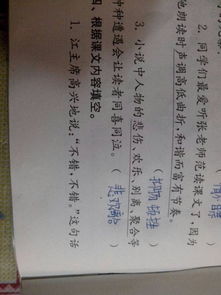 2. 同学们最爱听张老师范读课文了,因为
他朗读时声调高低曲折,和谐而富有节奏。
( )
3. 小说中人物的悲伤、欢乐、别离、聚合等
种种遭遇会让读者同喜同泣。( 悲欢离合 )
四、根据课文内容填空。
1. 江主席高兴地说:“不错,不错。”这句话